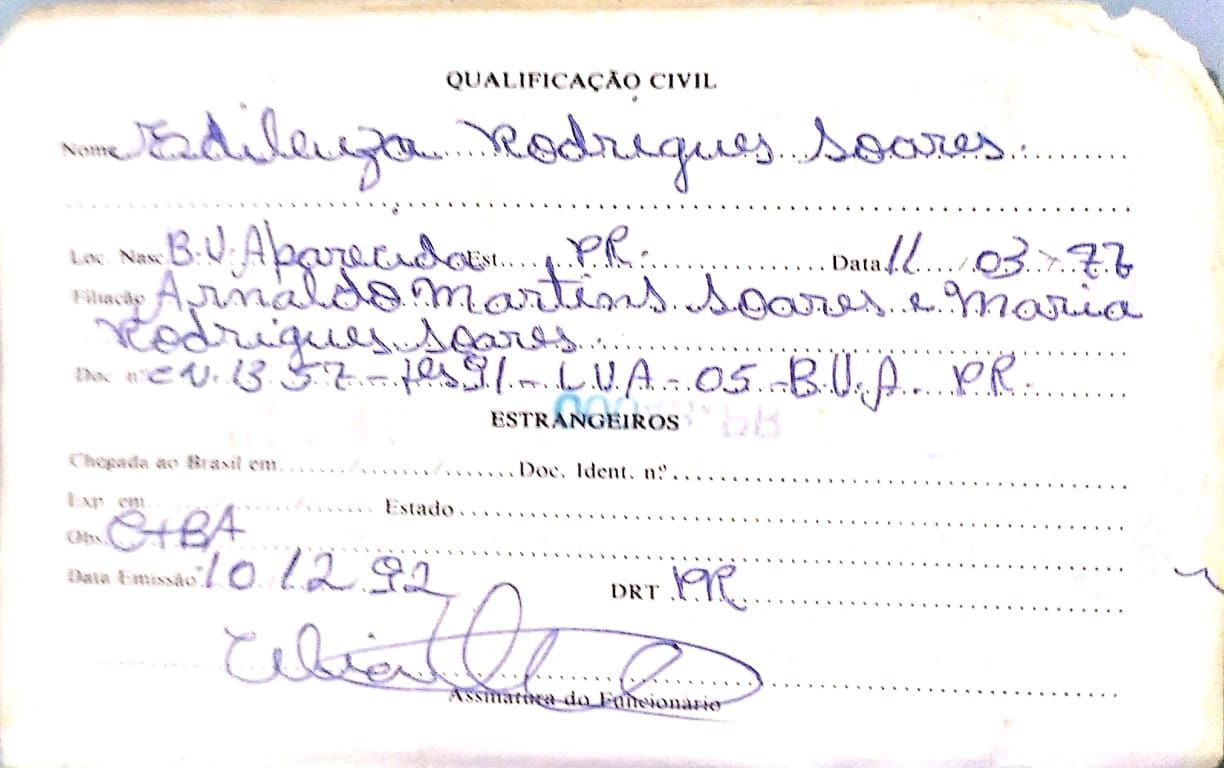 QUALIFICAÇÃO CIVIL
Nome Edileuza Rodrigues Soares.
Loc. Nasc. B.V. Aparecida Est. PR. Data 11 / 03 / 77
Filiação Arnaldo Martins Soares e Maria
Rodrigues Soares.
Doc. nº 1357 - fls 91 - LVA - 05 - B.V.A. PR.
ESTRANGEIROS
Chegada ao Brasil em / / Doc. Ident. nº
Exp. em / / Estado
Obs. CTBA
Data Emissão 10 12 92 DRT PR
Assinatura do Funcionário